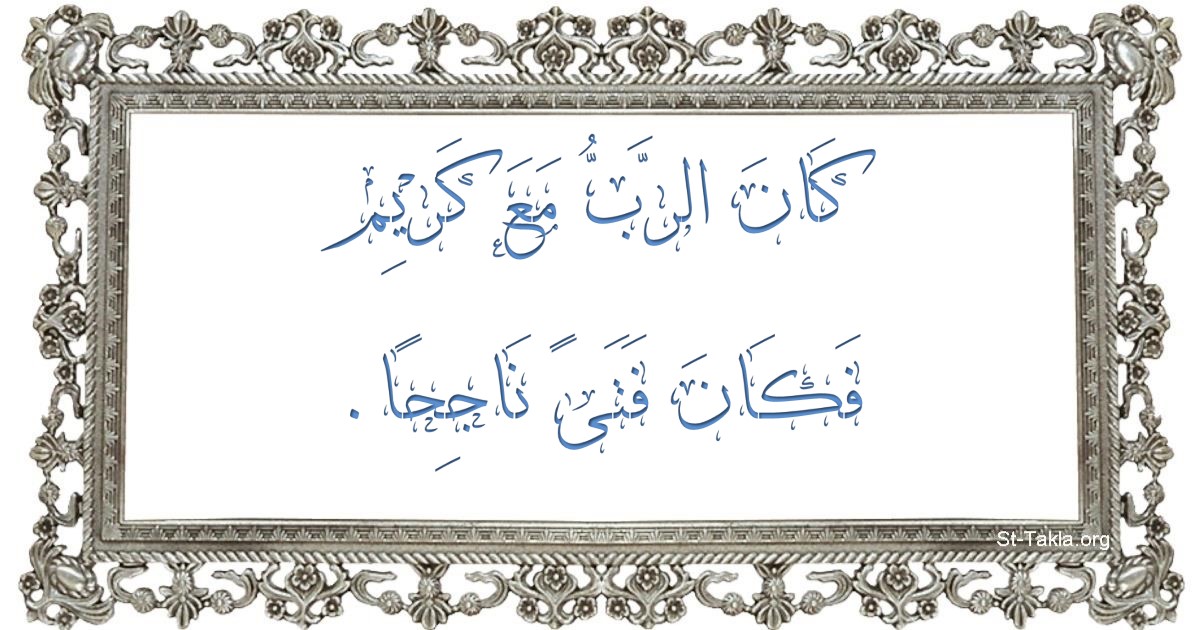 كَانَ الرَّبُّ مَعَ كَرِيْمْ
فَكَانَ فَتَىً نَاجِحًا .
St-Takla.org